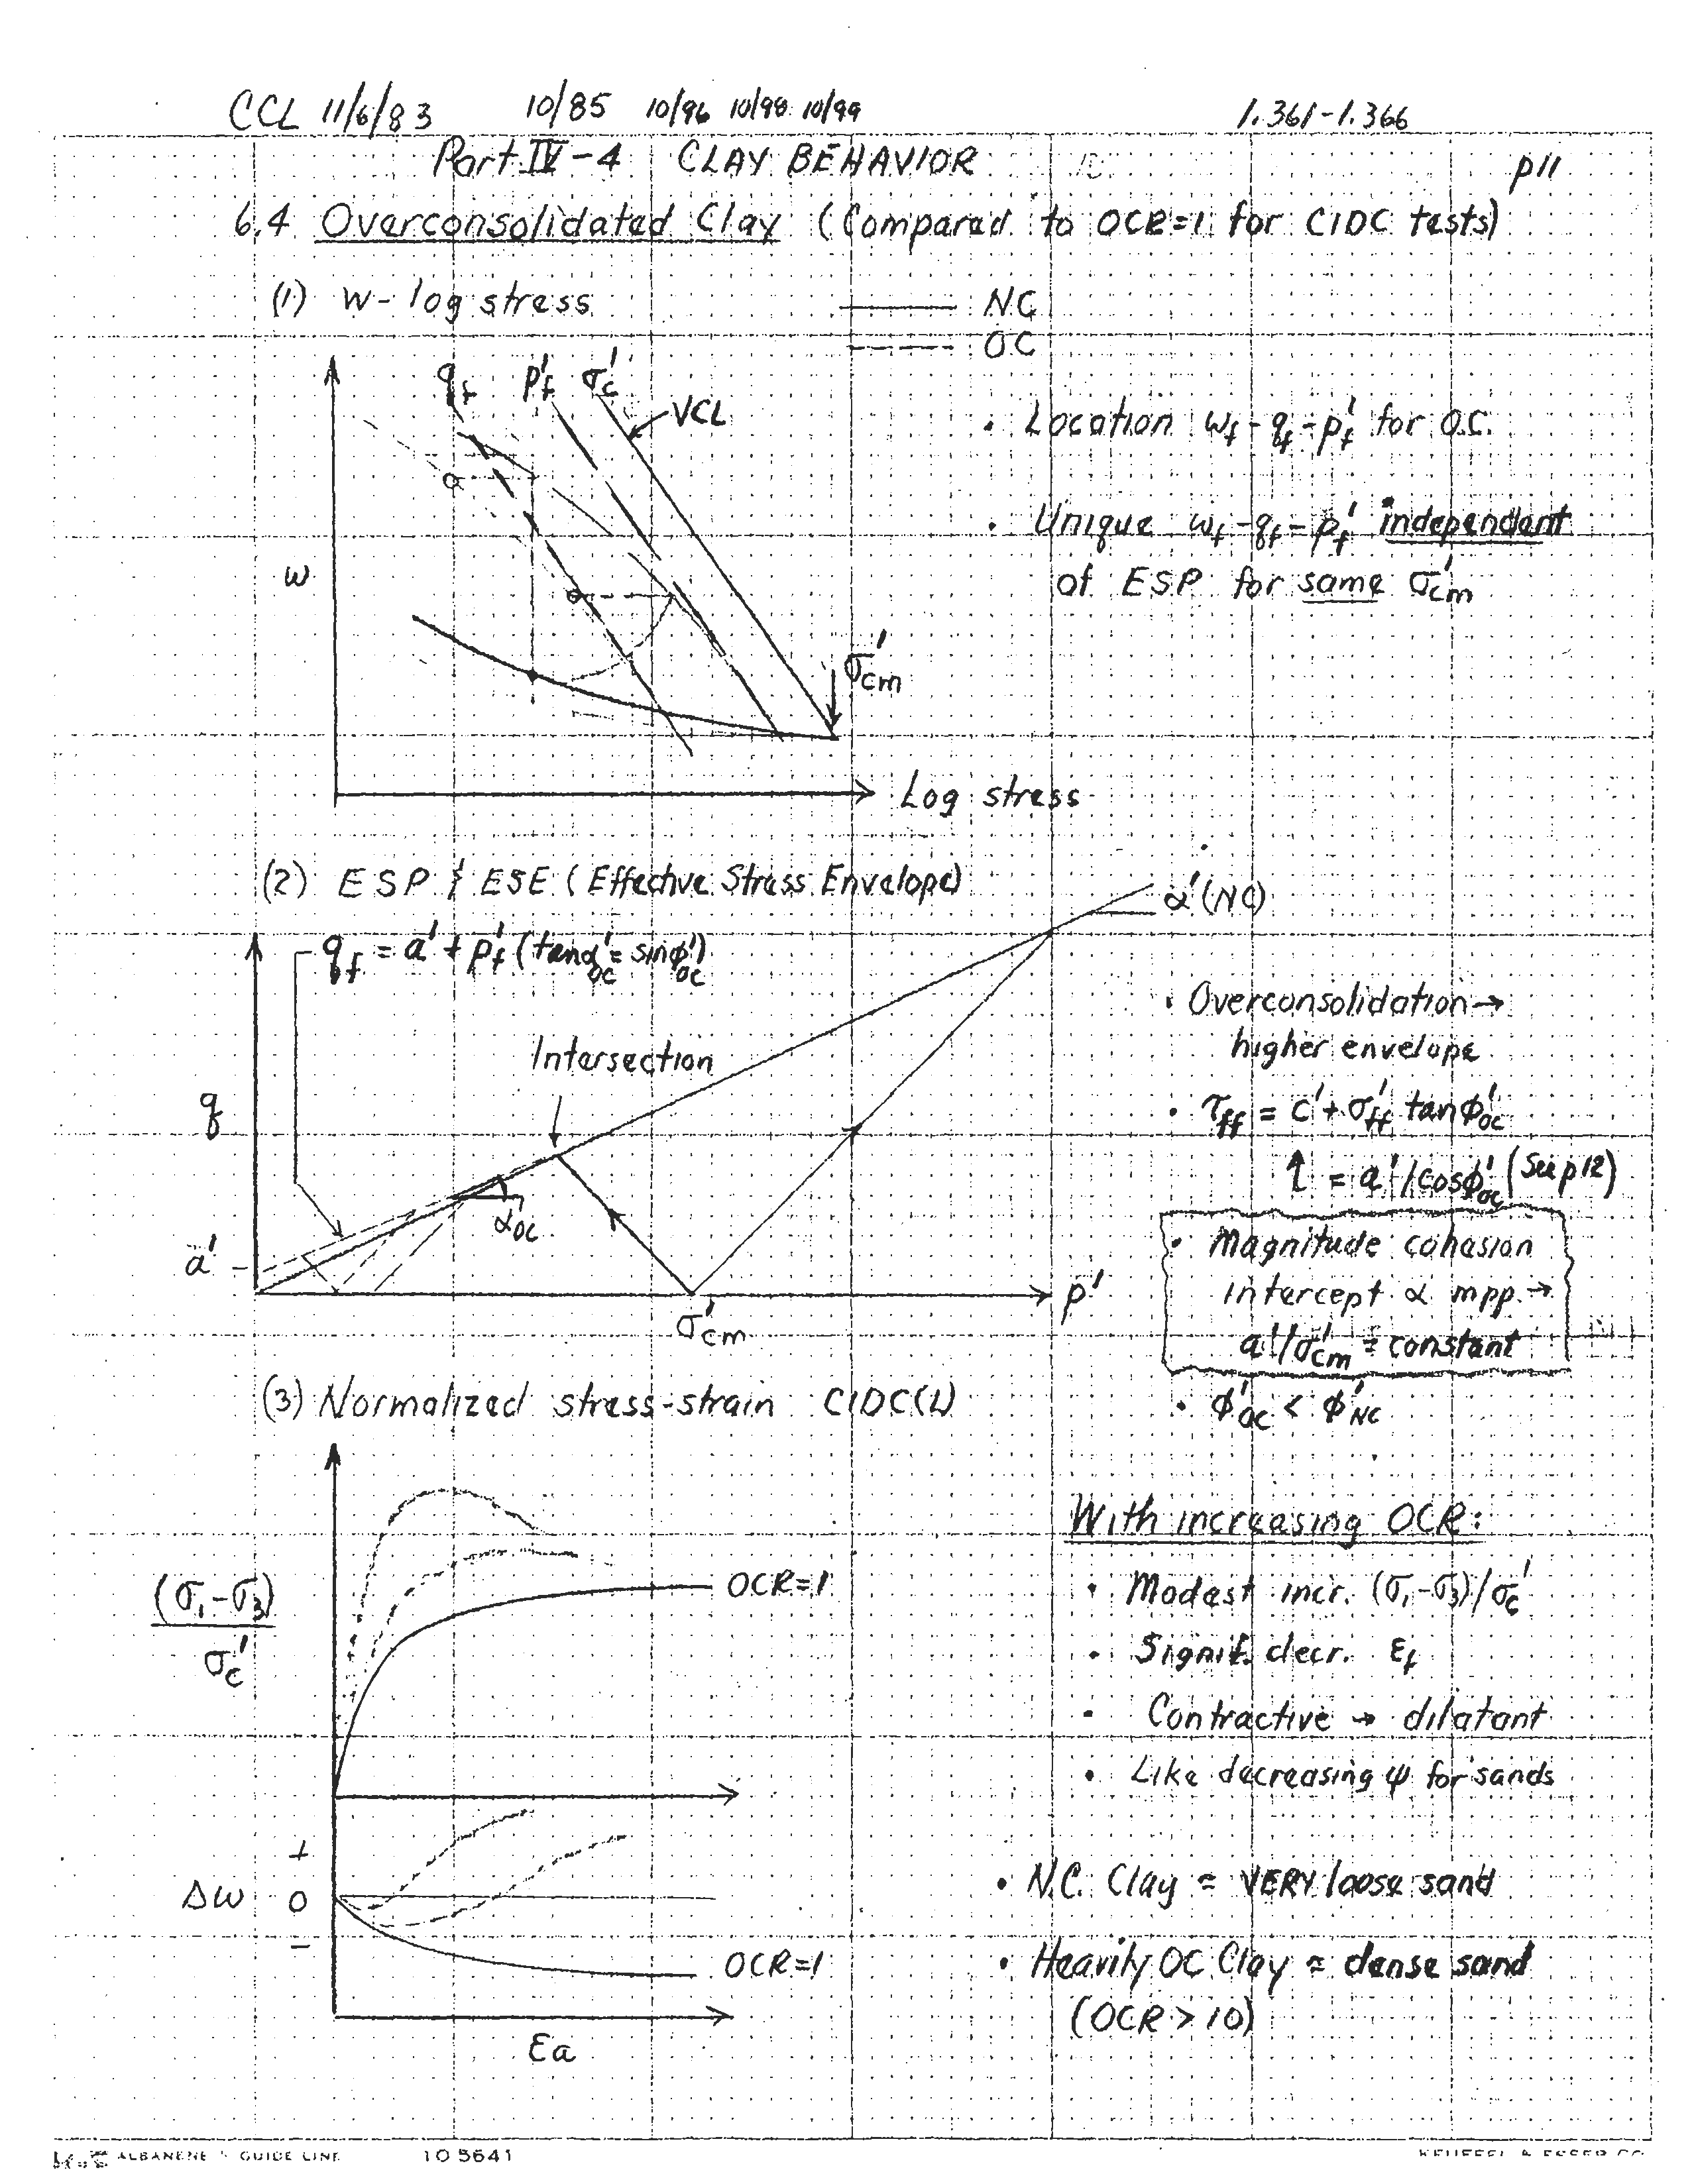 CCL 11/6/83 10/85 10/96 10/98 10/99 1.361-1.366
Part IV-4 CLAY BEHAVIOR p11
6.4 Overconsolidated Clay (Compared to OCR=1 for CIDC tests)
(1) w-log stress
NC
OC
qf p'f σ'c
VCL
w
σ'cm
Log stress
• Location wf-qf-p'f for O.C.
• Unique wf-qf-p'f independent
of ESP for same σ'cm
(2) ESP & ESE (Effective Stress Envelope)
qf = a' + p'f (tanα'oc = sinφ'oc)
α'(NC)
Intersection
q
a'
αoc
σ'cm
p'
• Overconsolidation →
higher envelope
• τff = c' + σ'ff tanφ'oc
↑ = a'/cosφ'oc (See p12)
• Magnitude cohesion
intercept α mpp. →
a'/σ'cm = constant
• φ'oc < φ'NC
(3) Normalized stress-strain CIDC(L)
(σ1-σ3)
σ'c
OCR=1
With increasing OCR:
• Modest incr. (σ1-σ3)/σ'c
• Signif. decr. εf
• Contractive → dilatant
• Like decreasing ψ for sands
+
Δw 0
-
OCR=1
εa
• N.C. Clay ≈ VERY loose sand
• Heavily OC Clay ≈ dense sand
(OCR > 10)
ALBANENE GUIDE LINE 10 5641
KEUFFEL & ESSER CO.